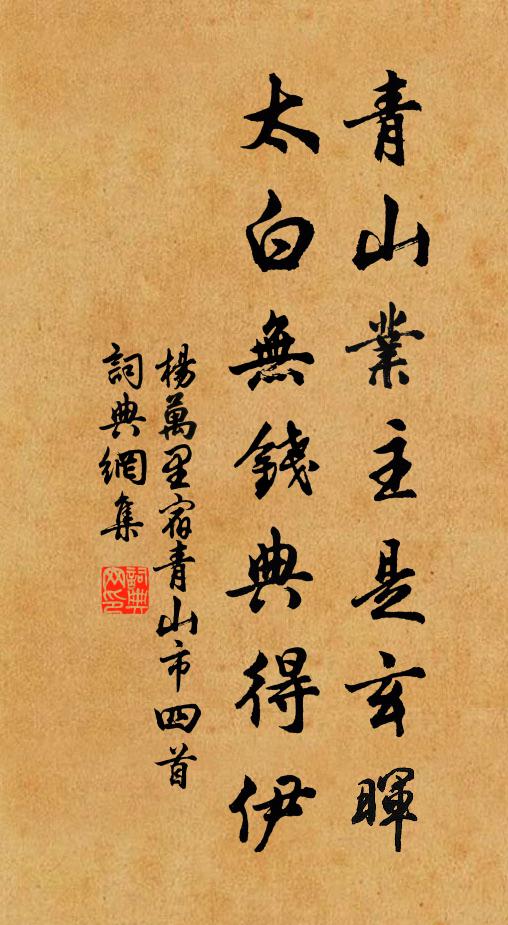 青山業主是玄暉
太白無錢典得伊
楊萬里宿青山市四首
詞典網集
詞典网印